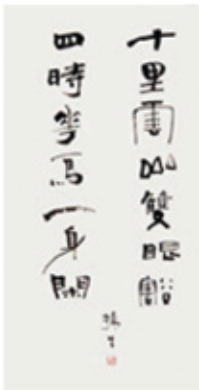 十里雲山雙眼豁
四時花鳥一身閑